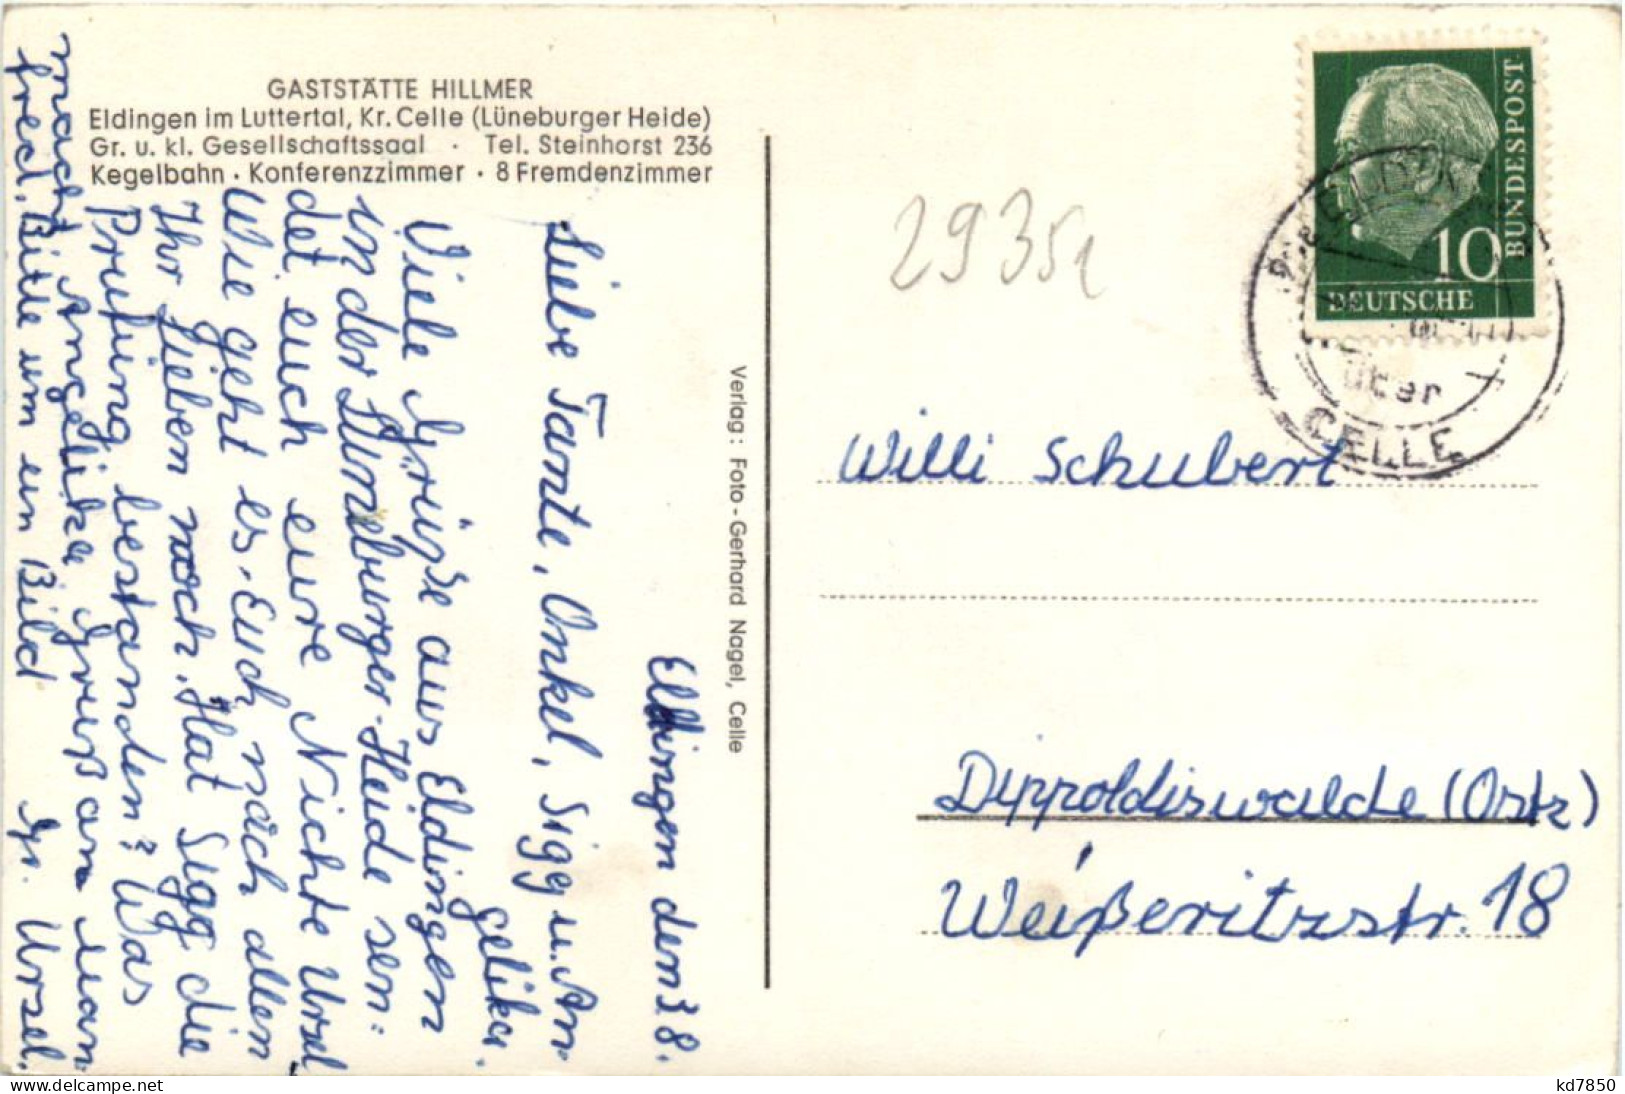 GASTSTÄTTE HILLMER
Eldingen im Luttertal, Kr. Celle (Lüneburger Heide)
Gr. u. kl. Gesellschaftssaal · Tel. Steinhorst 236
Kegelbahn · Konferenzzimmer · 8 Fremdenzimmer
Eldingen den 3 8.
Liebe Tante, Onkel, Sigg u. An
gelika.
Viele Grüße aus Eldingen
in der Lüneburger-Heide sen-
det euch eure Nichte Ursel
Wie geht es Euch nach allen
Ihr Lieben noch. Hat Sigg die
Prüfung bestanden? Was
macht Angelika Gruß an Man
fred. Bitte um ein Bild Gr. Ursel.
Verlag: Foto-Gerhard Nagel, Celle
2935a
DEUTSCHE
BUNDESPOST
10
über
CELLE
Willi Schubert
Dippoldiswalde (Ostz)
Weißeritzstr. 18
www.delcampe.net
kd7850